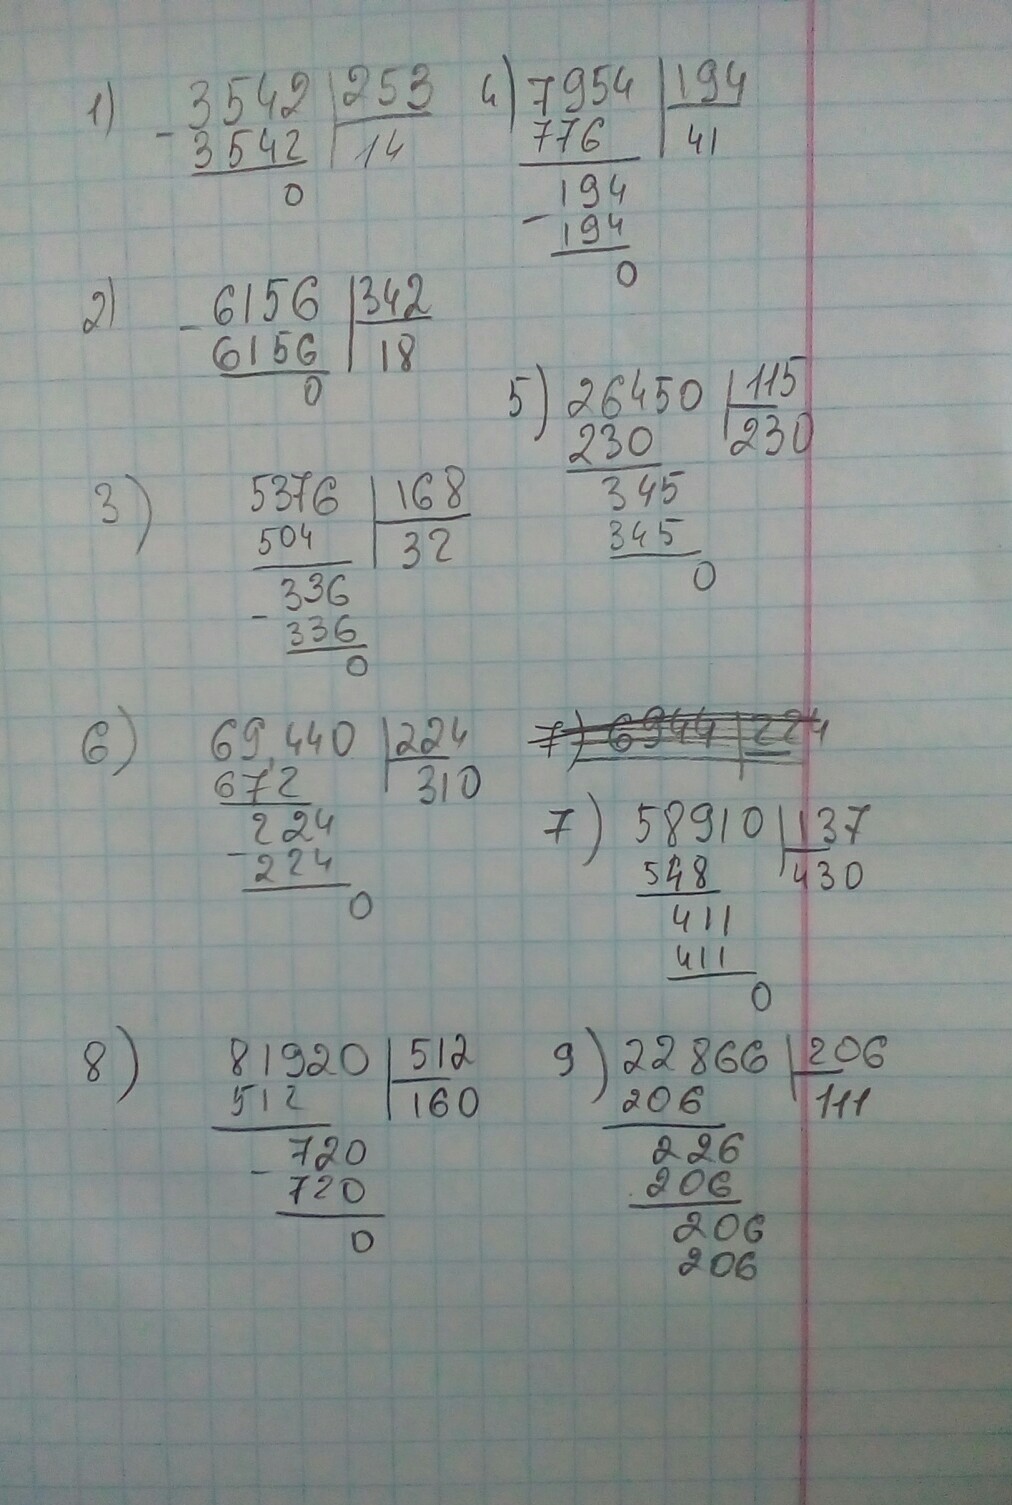 1) 3542 | 253
- 3542 | 14
0
2) - 6156 | 342
6156 | 18
0
3) 5376 | 168
504 | 32
- 336
336
0
4) 7954 | 194
776 | 41
- 194
194
0
5) 26450 | 115
230 | 230
345
345
0
6) 69,440 | 224
672 | 310
- 224
224
0
7) 6944 | 224
7) 58910 | 137
548 | 430
411
411
0
8) 81920 | 512
512 | 160
- 720
720
0
9) 22866 | 206
206 | 111
226
206
206
206